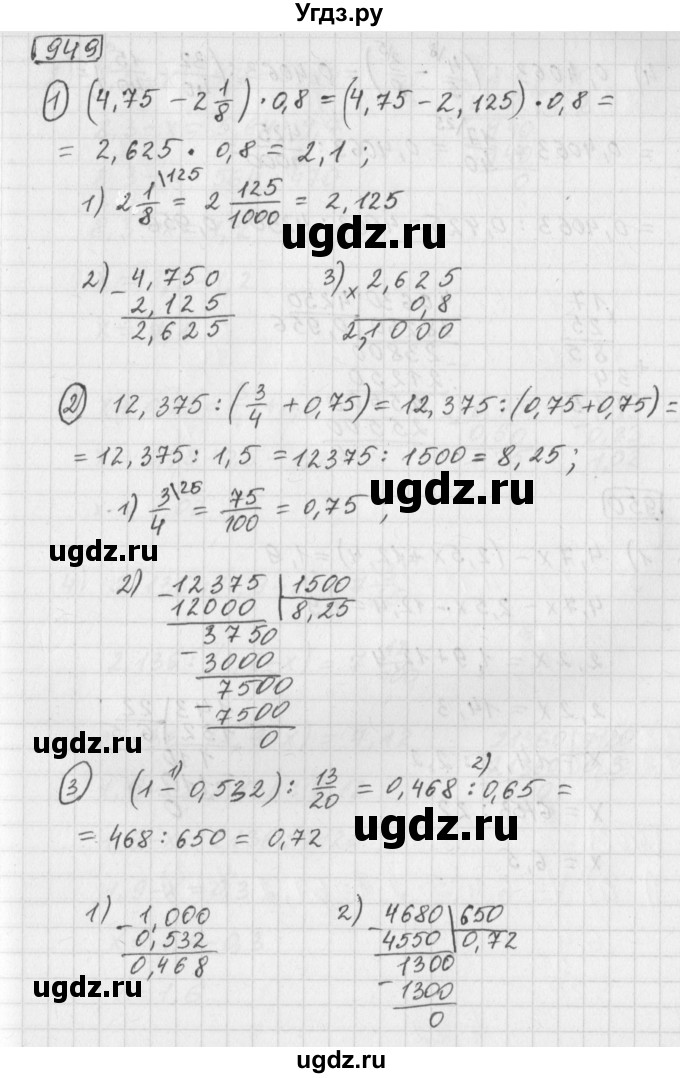 Угдз.ру
949
1) (4,75 − 2 1/8) · 0,8 = (4,75 − 2,125) · 0,8 =
= 2,625 · 0,8 = 2,1 ;
1) 2 1/8 \125 = 2 125/1000 = 2,125
ugdz.ru
ugdz.ru
2) − 4,750
2,125
2,625
3) × 2,625
0,8
2,1000
2) 12,375 : (3/4 + 0,75) = 12,375 : (0,75+0,75) =
= 12,375 : 1,5 = 12375 : 1500 = 8,25 ;
ugdz.ru
1) 3/4 \25 = 75/100 = 0,75 ;
ugdz.ru
2) − 12375 | 1500
12000 | 8,25
3750
− 3000
7500
− 7500
0
ugdz.ru
3) (1 −1) 0,532) : 13/20 = 0,468 :2) 0,65 =
= 468 : 650 = 0,72
ugdz.ru
1) − 1,000
0,532
0,468
2) − 4680 | 650
4550 | 0,72
1300
− 1300
0
ugdz.ru
ugdz.ru